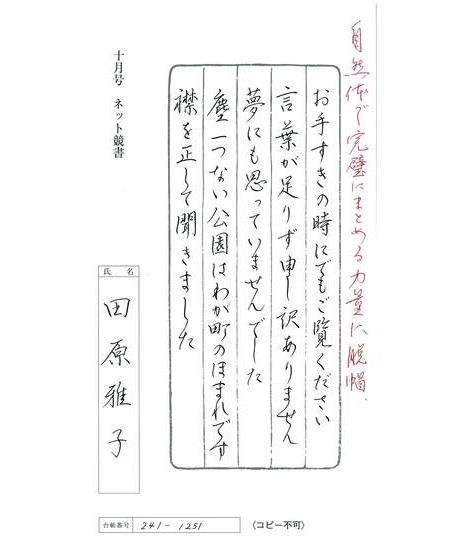 自然体で完璧にまとめる力量に脱帽、
お手すきの時にでもご覧ください
言葉が足りず申し訳ありません
夢にも思っていませんでした
塵一つない公園はわが町のほまれです
襟を正して聞きました
十月号 ネット競書
氏名
田原雅子
台帳番号 241-1251
〈コピー不可〉